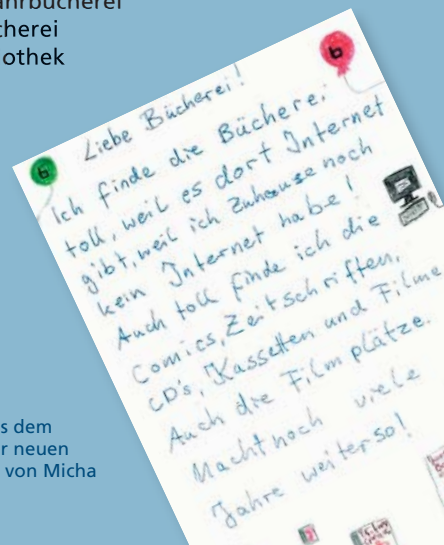 ahrbücherei
cherei
othek
Liebe Bücherei!
Ich finde die Bücherei
toll, weil es dort Internet
gibt, weil ich Zuhause noch
kein Internet habe!
Auch toll finde ich die
Comics, Zeitschriften,
CD's, Kassetten und Filme
Auch die Filmplätze.
Macht noch viele
Jahre weiter so!
6
6
s dem
r neuen
von Micha